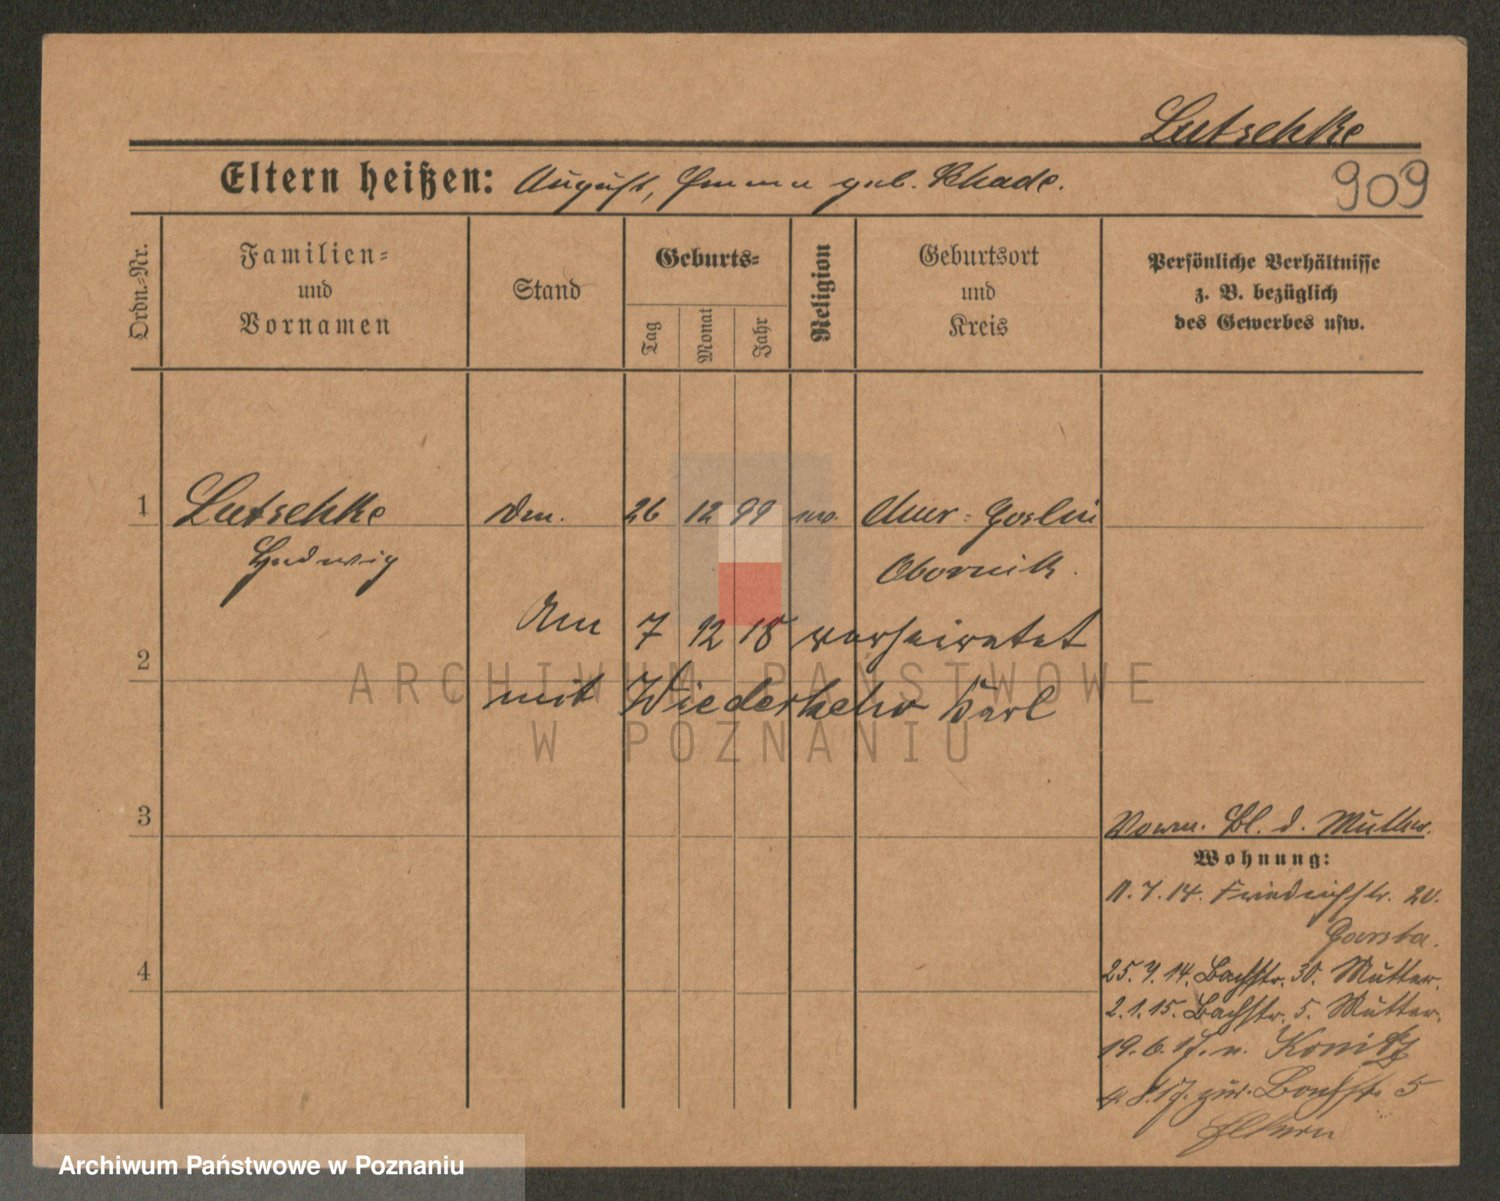 Lutschke
909
Eltern heißen: August, Emma geb. Rhade.
Ordn.-Nr.
Familien-
und
Vornamen
Stand
Geburts-
Tag
Monat
Jahr
Religion
Geburtsort
und
Kreis
Persönliche Verhältnisse
z. B. bezüglich
des Gewerbes usw.
1
Lutschke 26 12 99 Mur-Goslin
Hedwig Obornik.
Am 7 12 18 verheiratet
2
mit Wiederkehr Karl
3
Vorm. Bl. d. Mutter.
Wohnung:
11.7.14. Friedrichstr. 20.
25.7.14. Bachstr. 30. Mutter.
4
2.1.15. Bachstr. 5. Mutter.
19.6.17. n. Konitz
4.8.17. zur. Bachstr. 5
Eltern
ARCHIWUM PAŃSTWOWE
W POZNANIU
Archiwum Państwowe w Poznaniu